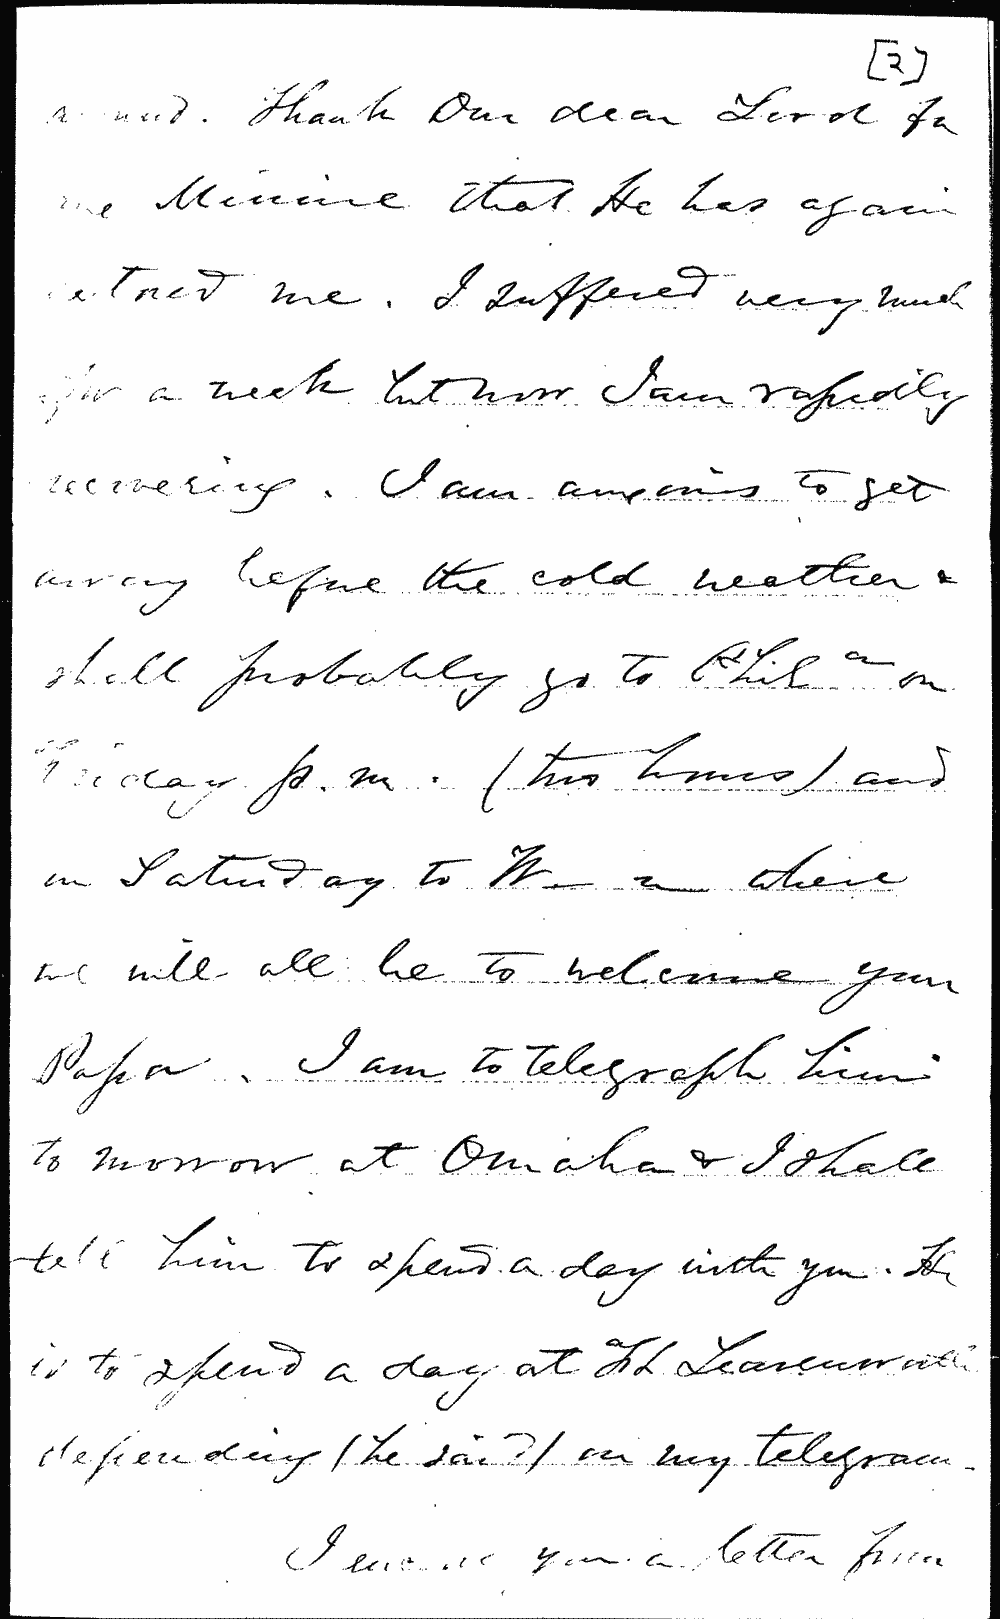 [2]
Thank Our dear Lord for
me Minnie that He has again
restored me. I suffered very much
for a week but now I am rapidly
recovering. I am anxious to get
away before the cold weather &
shall probably go to Phil<sup>a</sup> on
Friday p.m. (two hours) and
on Saturday to W—n where
we will all be to welcome your
Papa. I am to telegraph him
to morrow at Omaha & I shall
tell him to spend a day with you. He
is to spend a day at Ft Leavenworth
depending (he said) on my telegram.
I enclose you a letter from